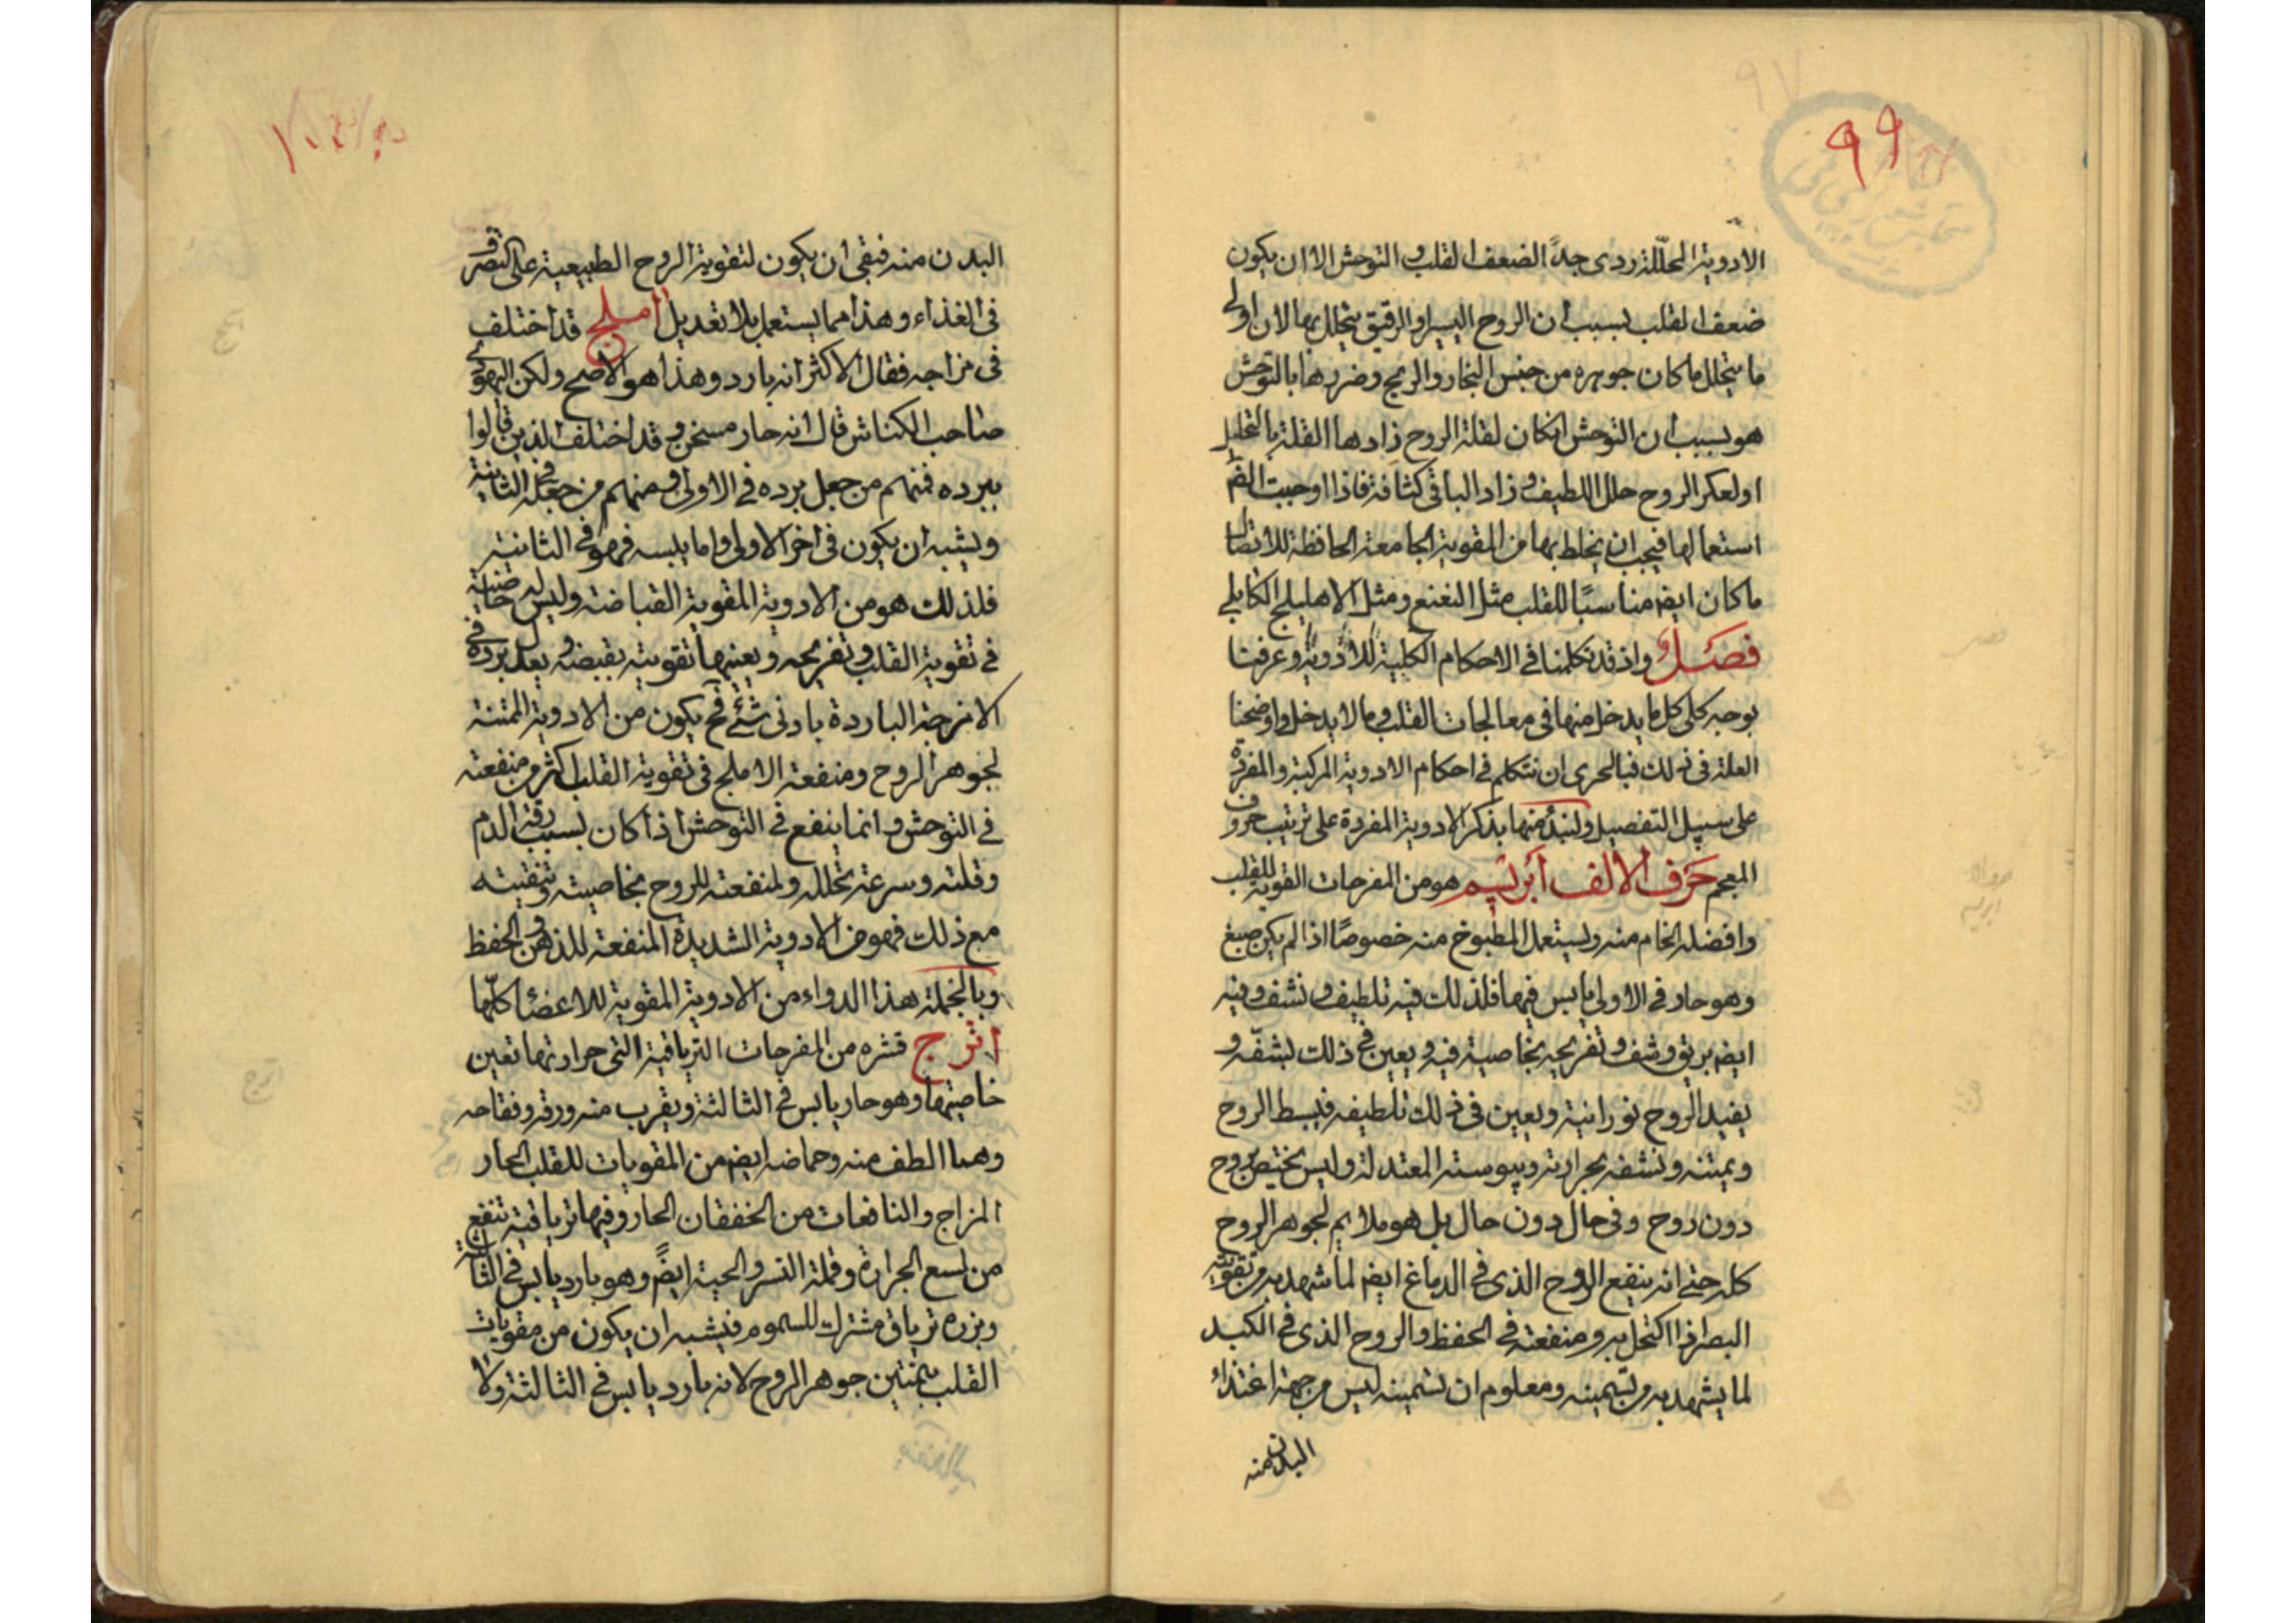 ٩٩
الادوية المحللة ردى جداً الضعف القلب و التوحش الا ان يكون
ضعف القلب بسبب ان الروح اليسير او الرقيق يتحلل بها لان اولى
ما يتحلل ما كان جوهره من جنس البخار والريح وضررها بالتوحش
هو بسبب ان التوحش انكان لقلة الروح زادها القلة بالتحليل
او لعكر الروح حلل اللطيف و زاد الباقى كثافة فاذا اوجبت الضر
استعمالها فيجب ان يخلط بها من المقوية الجامعة الحافظة للاتصال
ما كان ايضم مناسبًا للقلب مثل النعنع ومثل الاهليلج الكابلي
فصل واذ قد تكلمنا فى الاحكام الكلية للادوية و عرفنا
بوجه كلى كل ما يدخل منها فى معالجات القلب و ما لا يدخل و اوضحنا
العلة فى ذلك فبالحرى ان نتكلم فى احكام الادوية المركبة والمفردة
على سبيل التفصيل ولنبدأ منها بذكر الادوية المفردة على ترتيب حروف
المعجم حرف الالف ابريسم هو من المفرحات القوية للقلب
وافضله الخام منه وليستعمل المطبوخ منه خصوصًا اذا لم يكن صبغ
وهو حار فى الاولى يابس فيها فلذلك فيه تلطيف و نشف و فيه
ايضم بريق و شف و تفريحه بخاصية فيه و يعين فى ذلك بشفه و
يفيد الروح نورانية ويعين فى ذلك تلطيفه فيبسط الروح
ويمتنه و نشفه بحرارته و يبوسته المعتدلة و ليس يختص بروح
دون روح وفى حال دون حال بل هو ملايم لجوهر الروح
كله حتى انه ينفع الروح الذى فى الدماغ ايضم لما شهد به من تقوية
البصر اذا اكتحل به ومنفعته فى الحفظ والروح الذى فى الكبد
لما يشهد به من تسمينه ومعلوم ان تسمينه ليس من جهة اغتذاء
البدن منه
البدن منه فبقى ان يكون لتقوية الروح الطبيعية على التصرف
فى الغذاء و هذا مما يستعمل بلا تعديل املج قد اختلف
فى مزاجه فقال الاكثر انه بارد و هذا هو الاصح ولكن اليهودى
صاحب الكناش قال انه حار مسخن و قد اختلف الذين قالوا
ببرده فمنهم من جعل برده فى الاولى و منهم من جعله فى الثانية
ويشبه ان يكون فى اخر الاولى و اما يبسه فهو فى الثانية
فلذلك هو من الادوية المقوية القباضة وليس له خاصية
فى تقوية القلب و تفريحه و يعينها تقويته بقبضه و يعدل برده فى
الامزجة الباردة بادنى شئ فح يكون من الادوية الممتنة
لجوهر الروح ومنفعة الاملج فى تقوية القلب اكثر من منفعته
فى التوحش و انما ينفع فى التوحش اذا كان بسبب رقة الدم
وقلته و سرعة تحلله و لمنفعته للروح بخاصيته و تنقيته
مع ذلك فهو من الادوية الشديدة المنفعة للذهن و الحفظ
وبالجملة هذا الدواء من الادوية المقوية للاعضاء كلّها
اترج قشره من المفرحات الترياقية التى حرارتها تعين
خاصيتها و هو حار يابس فى الثالثة و يقرب منه ورقه و فقاحه
وهما الطف منه و حماضه ايضم من المقويات للقلب الحار
المزاج والنافعات من الخفقان الحار و فيها ترياقية تنفع
من لسع الجرارة و قملة النسر و الحية ايضم و هو بارد يابس فى الثالثة
وبزره ترياق مشترك للسموم فيشبه ان يكون من مقويات
القلب بتمتين جوهر الروح لانه بارد يابس فى الثالثة ولا